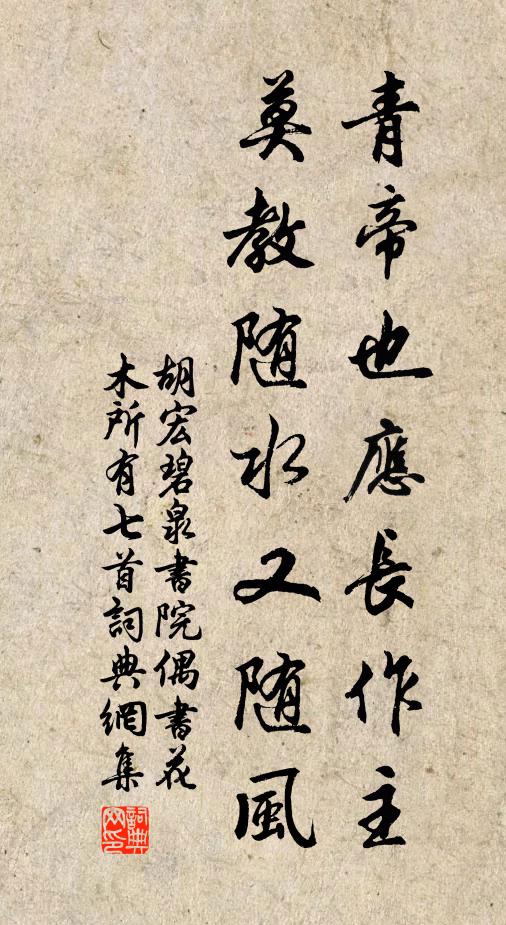 青帝也應長作主
莫教随水又随風
胡宏碧泉書院偶書花
木所有七首詞典網集
詞典
网印